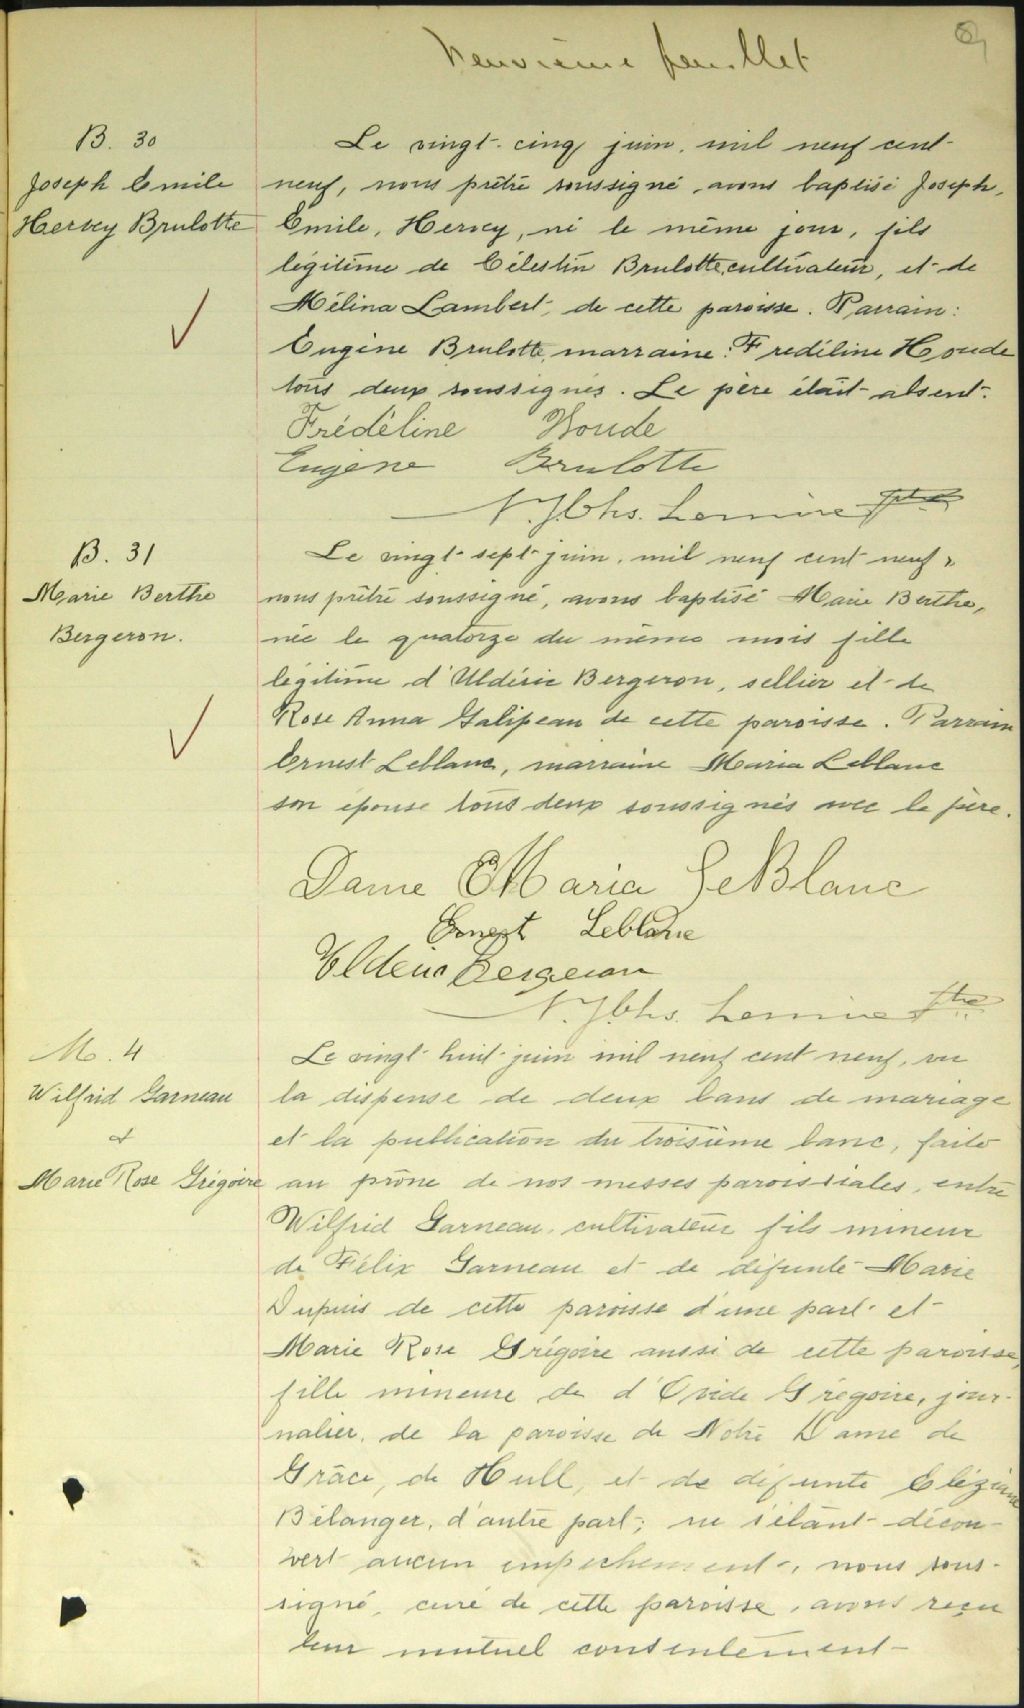 Neuvième feuillet
9
B. 30
Joseph Emile
Hervey Brulotte
Le vingt-cinq juin, mil neuf cent-
neuf, nous prêtre soussigné, avons baptisé Joseph,
Emile, Hervey, né le même jour, fils
légitime de Célestin Brulotte, cultivateur, et de
Mélina Lambert, de cette paroisse. Parrain:
Eugène Brulotte, marraine: Fredéline Houde
tous deux soussignés. Le père était absent.
Frédéline Houde
Eugène Brulotte
N. J. Chs. Lemire Ptre
B. 31
Marie Berthe
Bergeron.
Le vingt-sept juin, mil neuf cent neuf,
nous prêtre soussigné, avons baptisé Marie Berthe,
née le quatorze du même mois fille
légitime d'Uldéric Bergeron, sellier et de
Rose Anna Galipeau de cette paroisse. Parrain
Ernest Leblanc, marraine Maria Leblanc
son épouse tous deux soussignés avec le père.
Dame Maria LeBlanc
Ernest Leblanc
Uldéric Bergeron
N. J. Chs. Lemire Ptre
M. 4
Wilfrid Garneau
&
Marie Rose Grégoire
Le vingt-huit juin mil neuf cent neuf, vu
la dispense de deux bans de mariage
et la publication du troisième banc, faite
au prône de nos messes paroissiales, entre
Wilfrid Garneau, cultivateur fils mineur
de Félix Garneau et de défunte Marie
Dupuis de cette paroisse d'une part et
Marie Rose Grégoire aussi de cette paroisse,
fille mineure de d'Ovide Grégoire, jour-
nalier, de la paroisse de Notre Dame de
Grâce, de Hull, et de défunte Eléziane
Bélanger, d'autre part; ne s'étant décou-
vert aucun empechement, nous sous-
signé, curé de cette paroisse, avons reçu
leur mutuel consentement